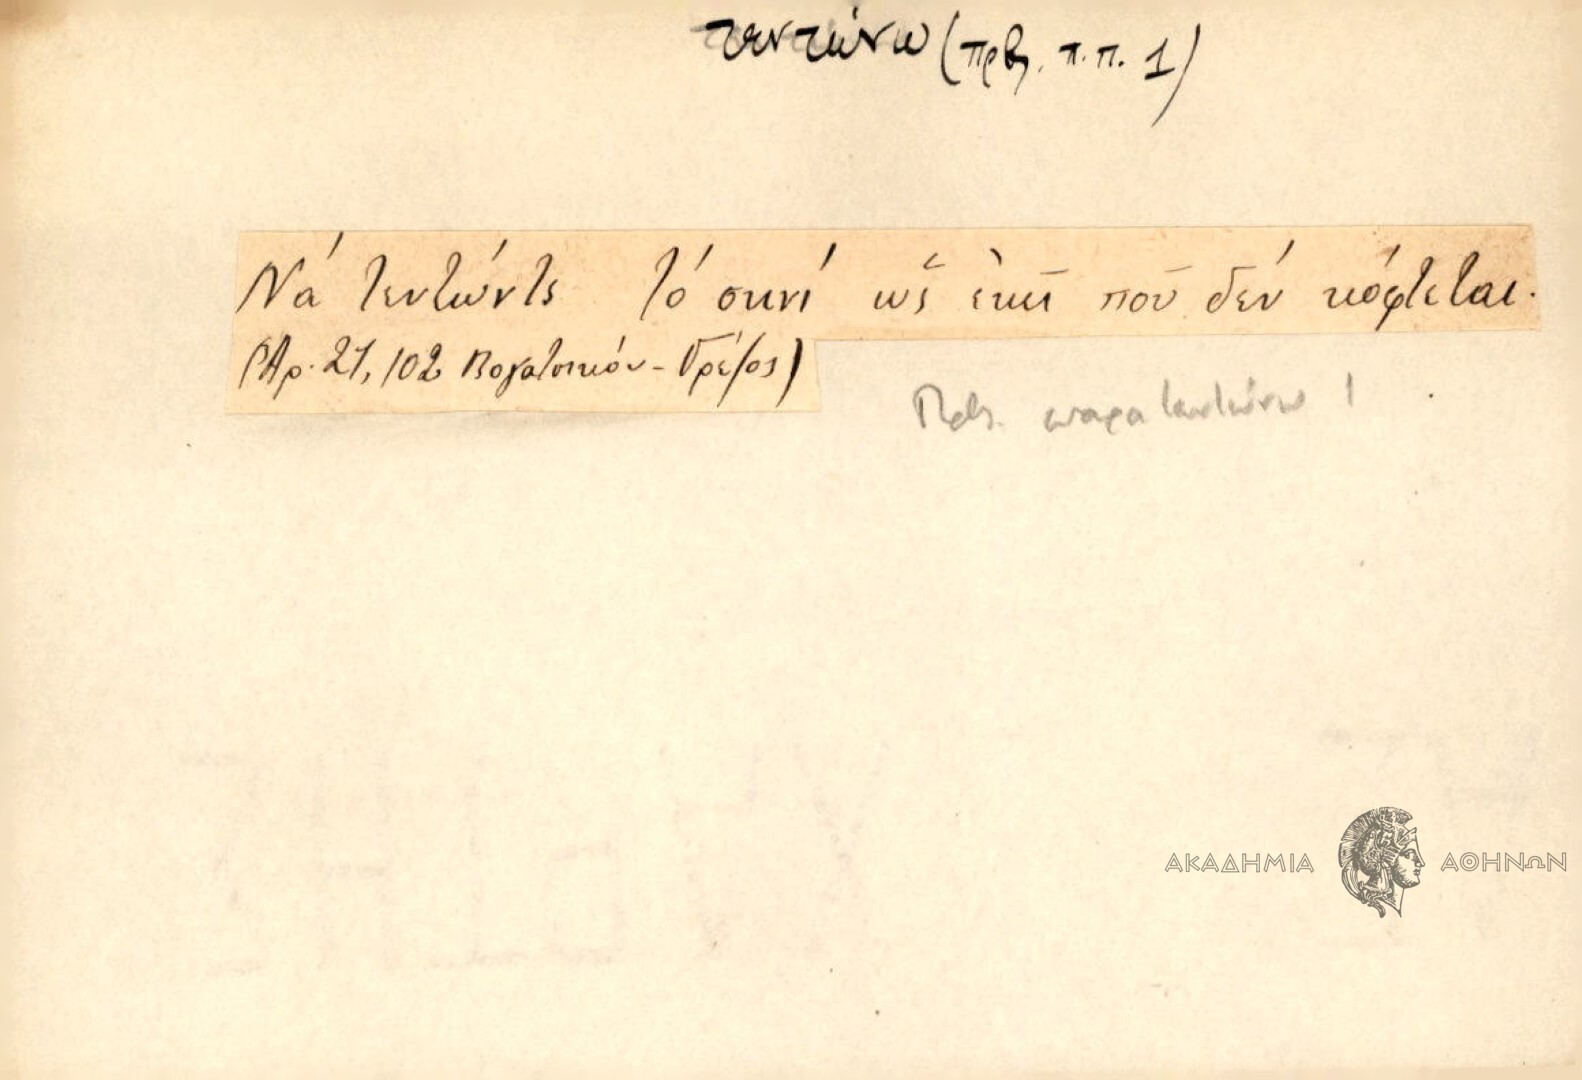 τεντώνω (πρβ. π.π. 1)
Νά τεντώντς τό σκνί ὡς ἐκεῖ ποῦ δέν κόφτεται.
(Ἀρ. 21, 102 Βογατσικόν - Γρέζος)
Πρβ. παρατεντώνω 1
ΑΚΑΔΗΜΙΑ ΑΘΗΝΩΝ